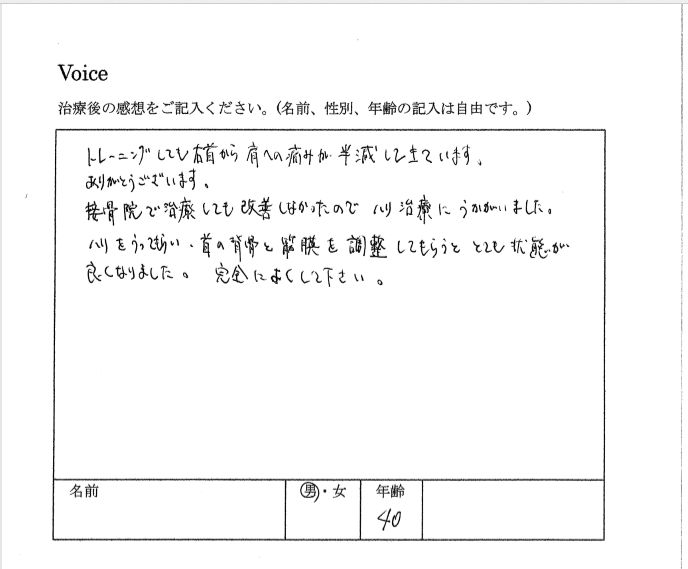 Voice
治療後の感想をご記入ください。(名前、性別、年齢の記入は自由です。)
トレーニングしても右首から肩への痛みが半減して来ています。
ありがとうございます。
接骨院で治療しても改善しなかったのでハリ治療にうかがいました。
ハリをうってもらい、首の背骨と筋膜を調整してもらうととても状態が
良くなりました。 完全によくして下さい。
名前
男・女
年齢
40